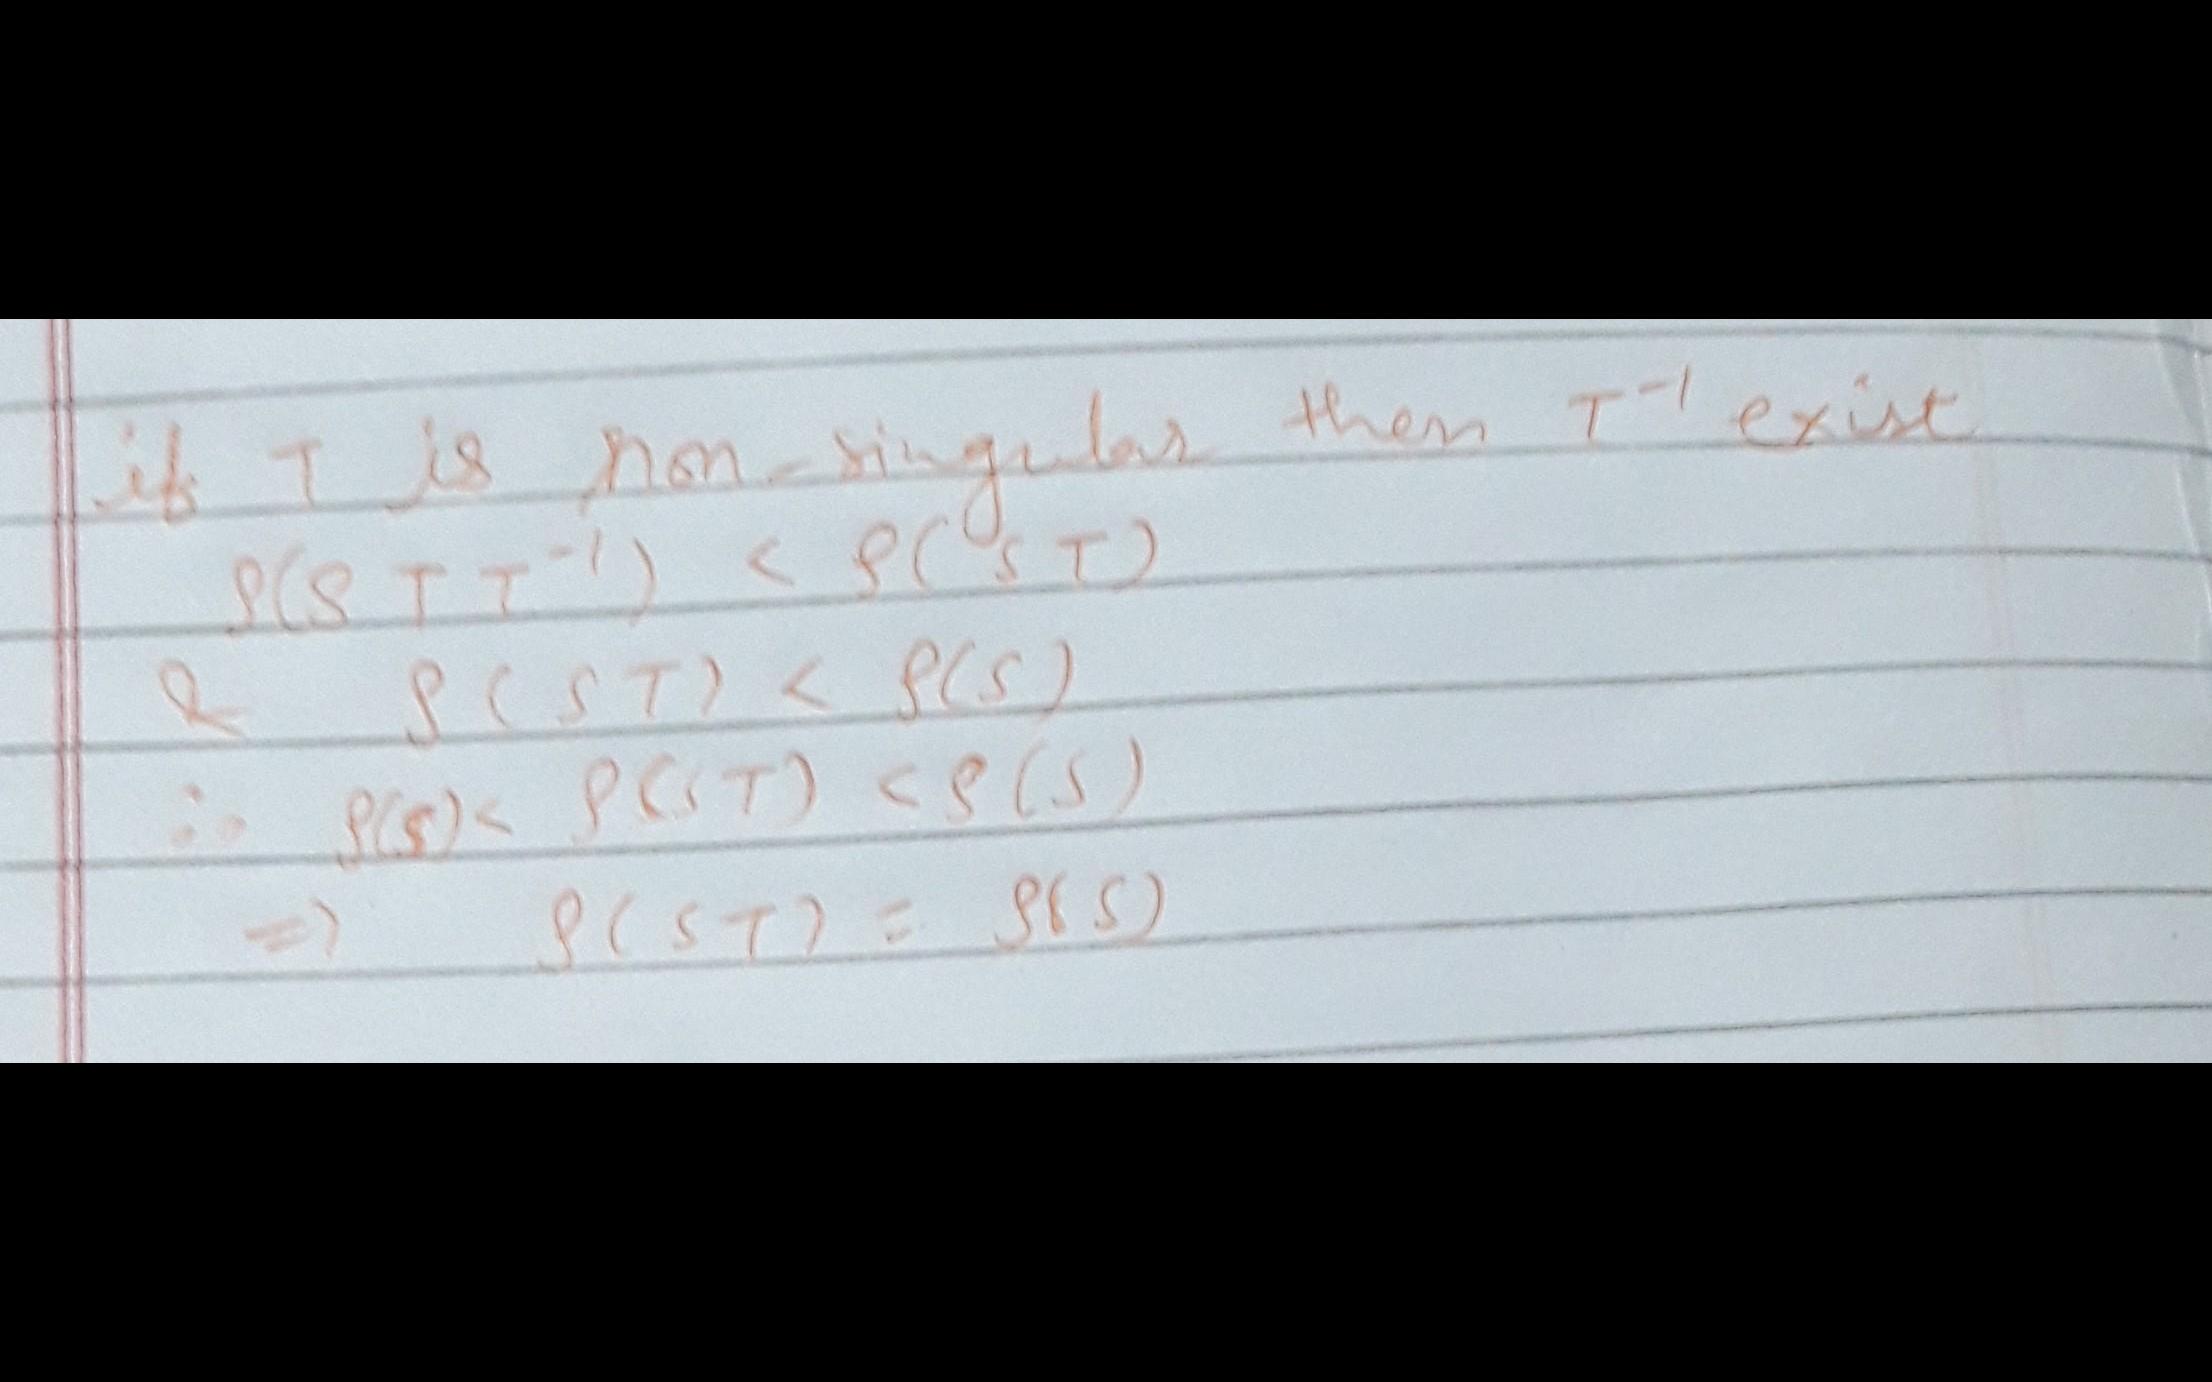 if T is non-singular then T⁻¹ exist
ρ(S T T⁻¹) < ρ(S T)
& ρ(S T) < ρ(S)
∴ ρ(S) < ρ(S T) < ρ(S)
⇒ ρ(S T) = ρ(S)